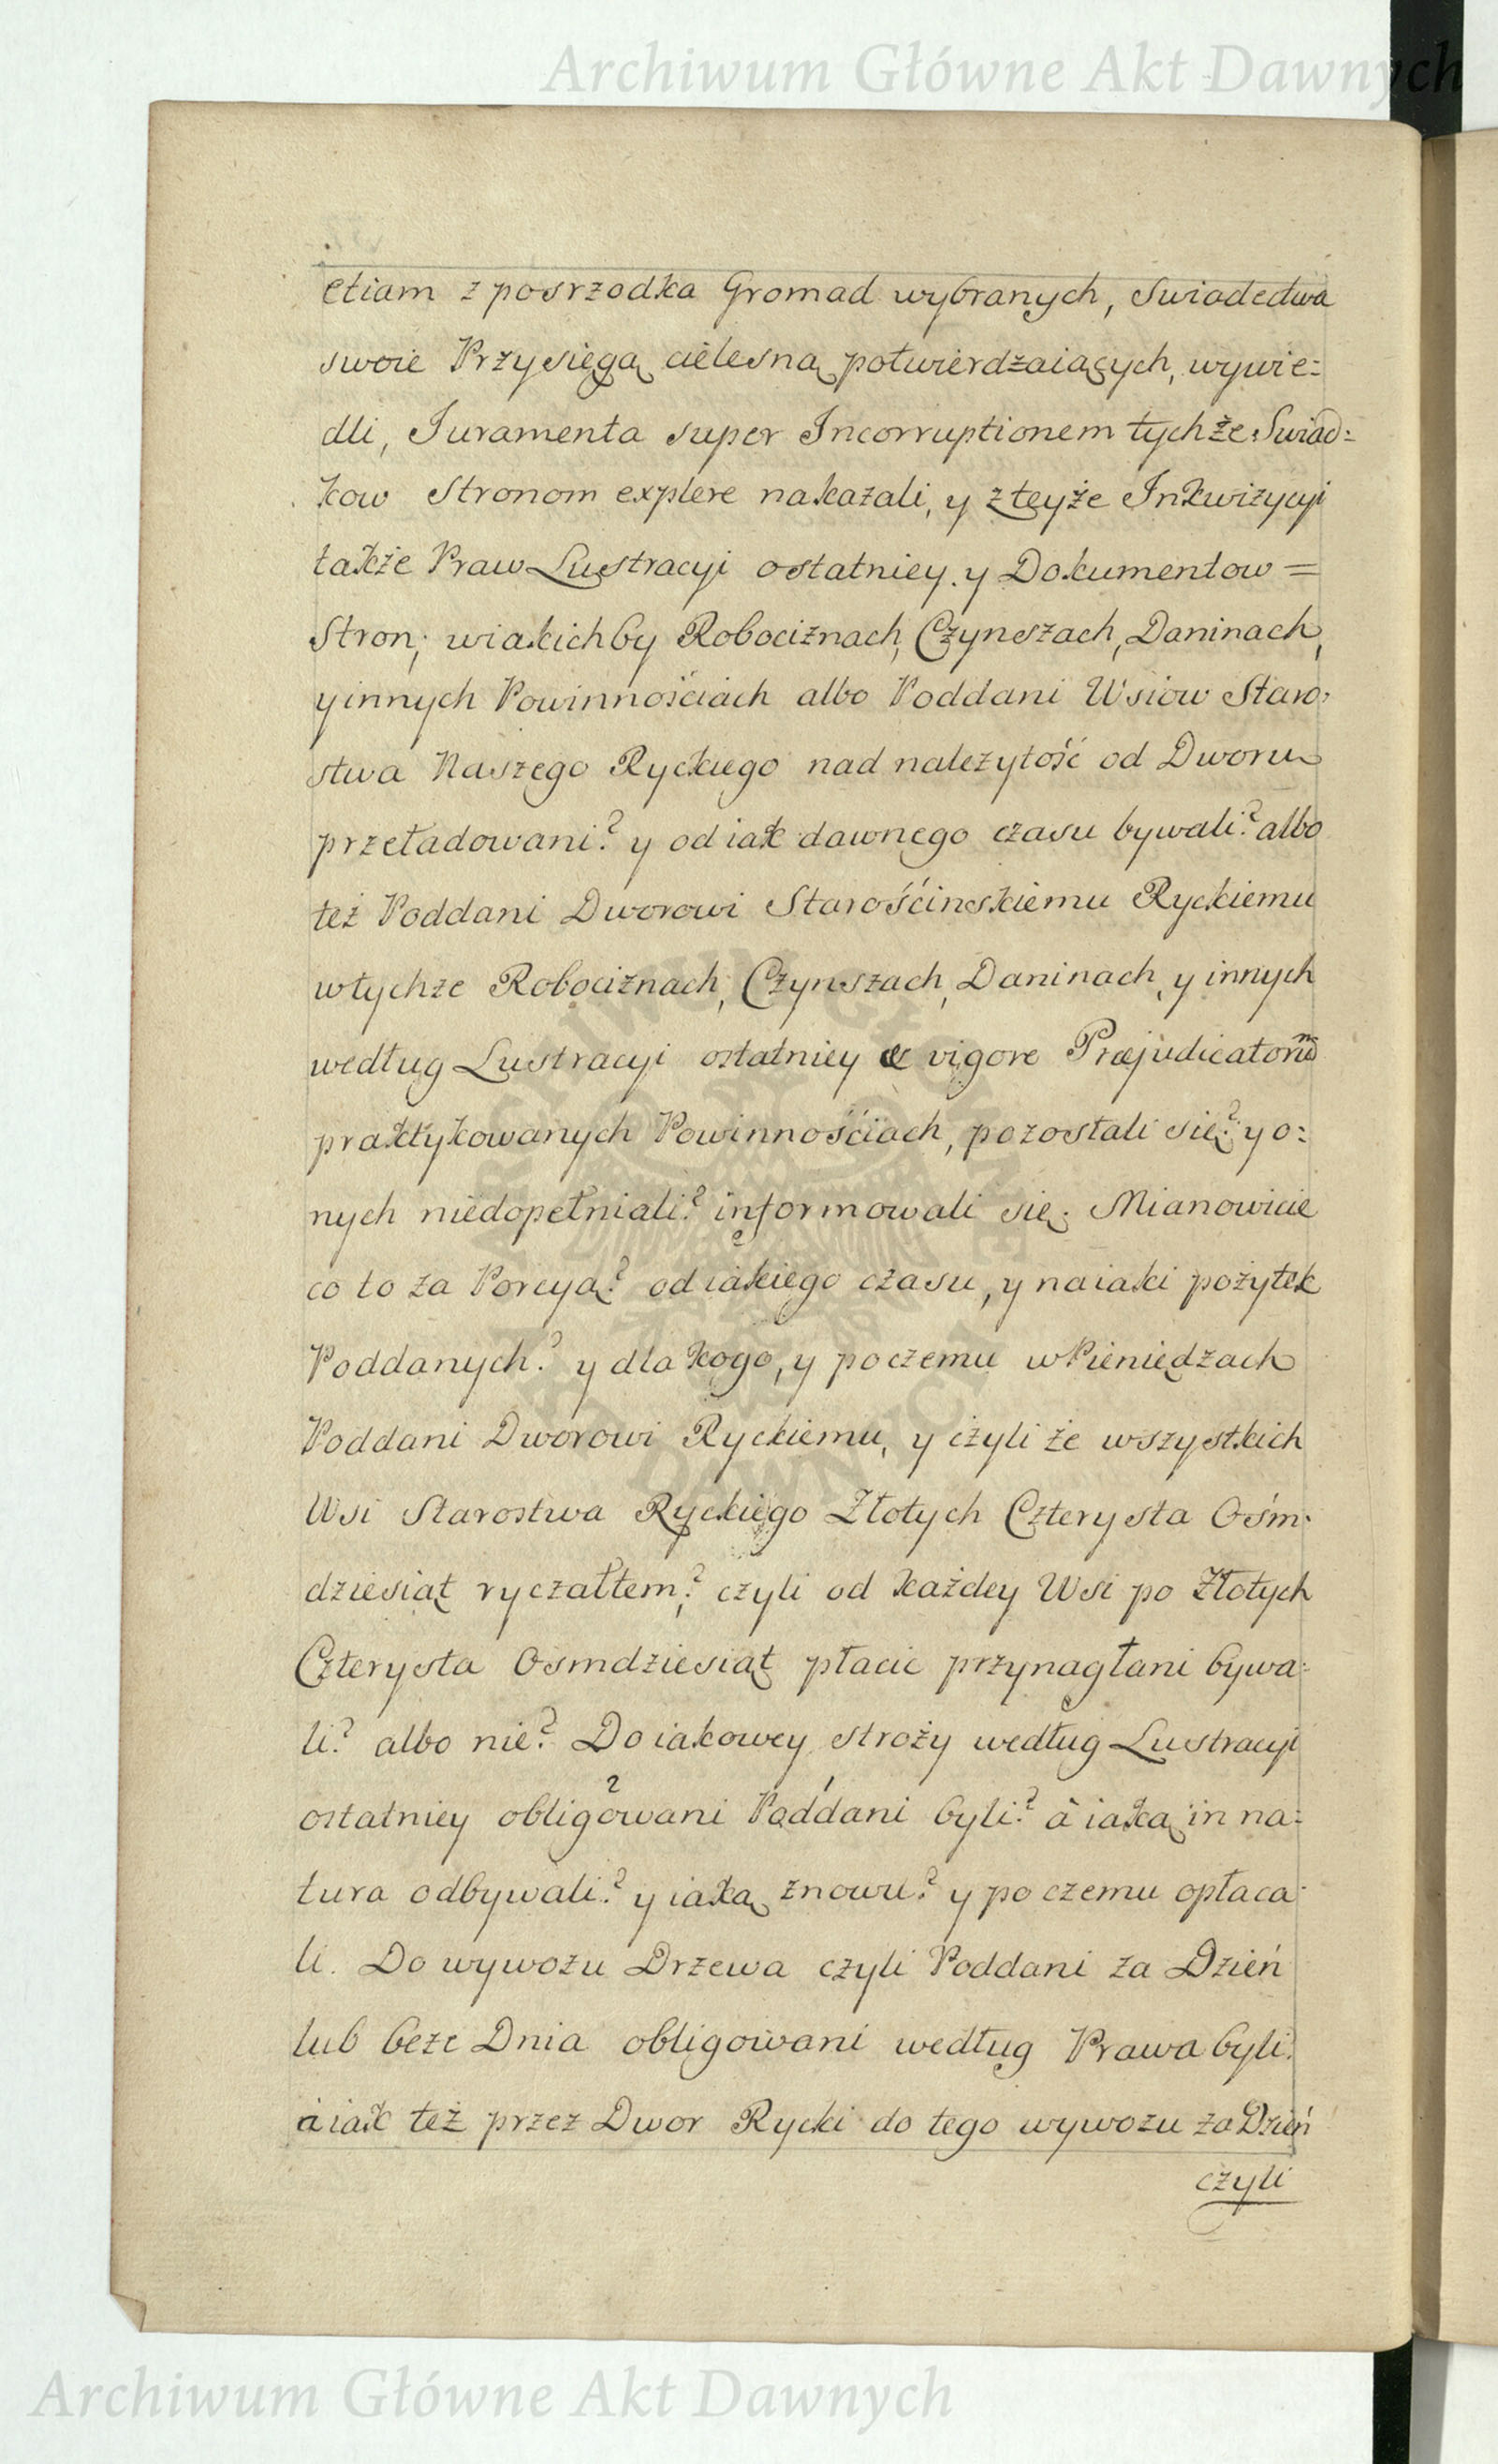 Archiwum Główne Akt Dawnych
etiam z posrzodka Gromad wybranych, Swiadectwa
swoie Przysięgą cielesną potwierdzaiących, wywie=
dli, Juramenta super Incorruptionem tychże Swiad=
kow Stronom explere nakazali, y z teyże Inkwizycyi
także Praw Lustracyi ostatniey. y Dokumentow =
Stron; wiakichby Robociznach, Czynszach, Daninach,
y innych Powinnościach albo Poddani Wsiow Staro=
stwa Naszego Ryckiego nad należytość od Dworu
przeładowani? y od iak dawnego czasu bywali? albo
też Poddani Dworowi Starościnskiemu Ryckiemu
wtychże Robociznach, Czynszach, Daninach, y innych
według Lustracyi ostatniey & vigore Præjudicatorũ
praktykowanych Powinnościach, pozostali się? y o=
nych niedopełniali? informowali się. Mianowicie
co to za Porcya? od iakiego czasu, y naiaki pożytek
Poddanych? y dla kogo, y poczemu wPieniędzach
Poddani Dworowi Ryckiemu, y czyli że wszystkich
Wsi Starostwa Ryckiego Złotych Czterysta Ośm=
dziesiąt ryczałtem? czyli od każdey Wsi po Złotych
Czterysta Osmdziesiąt płacic przynaglani bywa=
li? albo nie? Do iakowey stroży według Lustracyi
ostatniey obligowani Poddani byli? à iaką in na=
tura odbywali? y iaką znowu? y po czemu opłaca=
li. Do wywozu Drzewa czyli Poddani za Dzień
lub beze Dnia obligowani według Prawa byli.
à iak też przez Dwor Rycki do tego wywozu za Dzień
czyli
Archiwum Główne Akt Dawnych